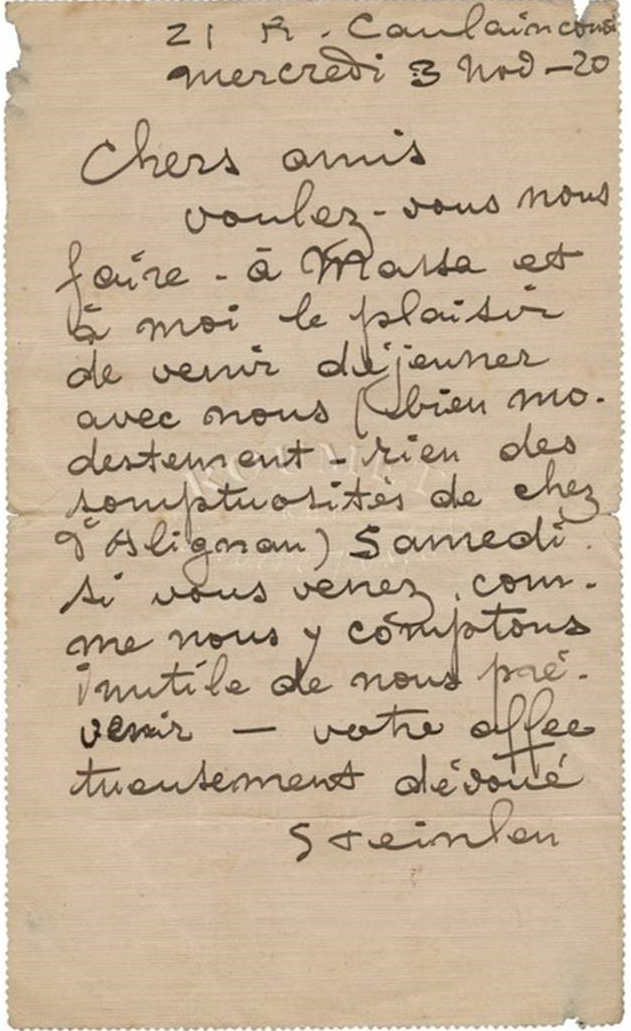 21 R. Caulaincourt
mercredi 3 Nov - 20
Chers amis
voulez-vous nous
faire - à Massa et
à moi le plaisir
de venir déjeuner
avec nous (bien mo-
destement - rien des
somptuosités de chez
d'Aslignan) Samedi.
si vous venez, com-
me nous y comptons
inutile de nous pré-
venir — votre affec
tueusement dévoué
Steinlen